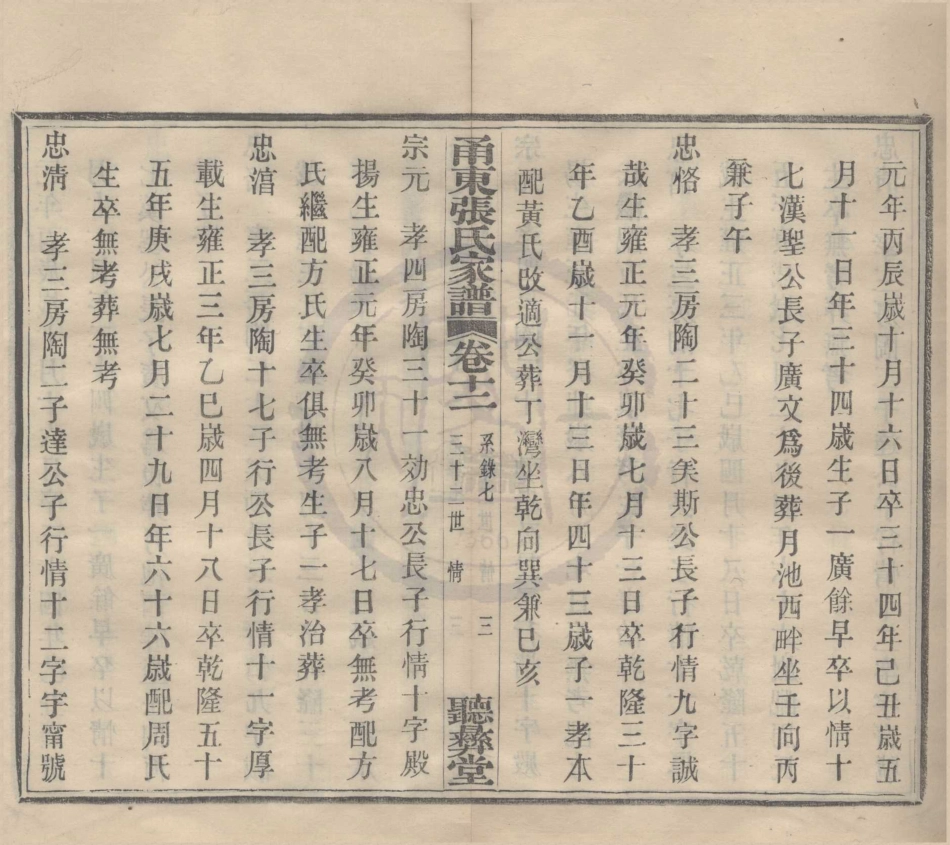 元年丙辰歲十月十六日卒三十四年己丑歲五
月十一日年三十四歲生子一廣餘早卒以情十
七漢聖公長子廣文爲後葬月池西畔坐壬向丙
兼子午
忠恪 孝三房陶二十三美斯公長子行情九字誠
哉生雍正元年癸卯歲七月十三日卒乾隆三十
年乙酉歲十一月十三日年四十三歲子一孝本
配黃氏改適公葬丁灣坐乾向巽兼巳亥
甬東張氏家譜 卷十二
系錄七
三十二世 情 三
聽彝堂
宗元 孝四房陶三十一効忠公長子行情十字殿
揚生雍正元年癸卯歲八月十七日卒無考配方
氏繼配方氏生卒俱無考生子一孝治葬
忠湻 孝三房陶十七子行公長子行情十一字厚
載生雍正三年乙巳歲四月十八日卒乾隆五十
五年庚戌歲七月二十九日年六十六歲配周氏
生卒無考葬無考
忠清 孝三房陶二子達公子行情十二字宇甯號